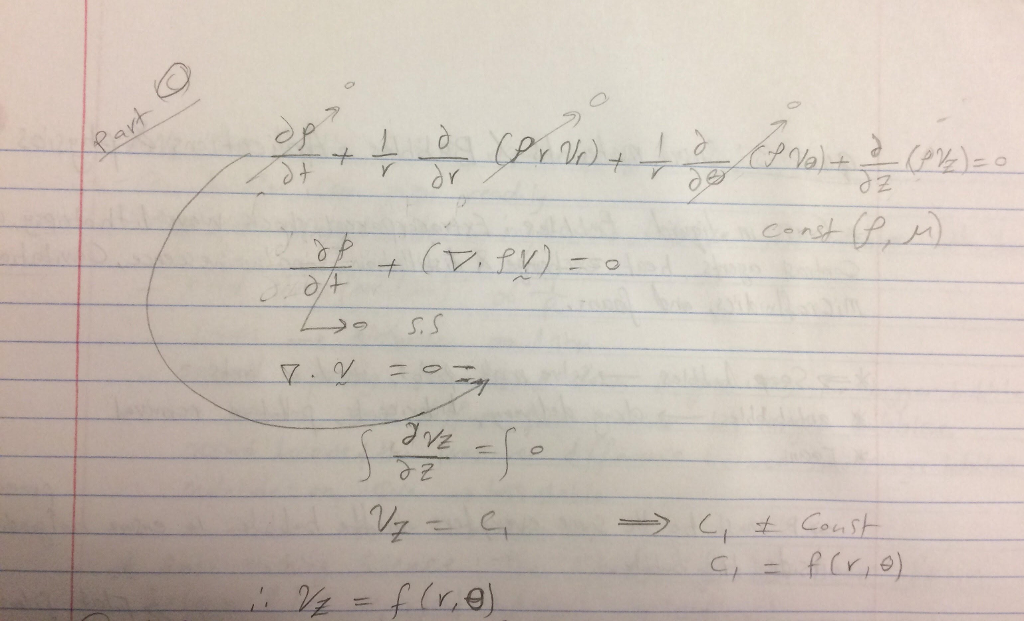 Part C
∂ρ/∂t + 1/r ∂/∂r (ρ r Vr) + 1/r ∂/∂θ (ρ Vθ) + ∂/∂z (ρ Vz) = 0
0 0 0
const (ρ, μ)
∂ρ/∂t + (∇. ρ V) = 0
→ 0 S.S
∇. V = 0 ⇒
∫ ∂Vz/∂z = ∫ 0
Vz = C₁ ⟹ C₁ ≠ Const
C₁ = f(r, θ)
∴ Vz = f(r, θ)